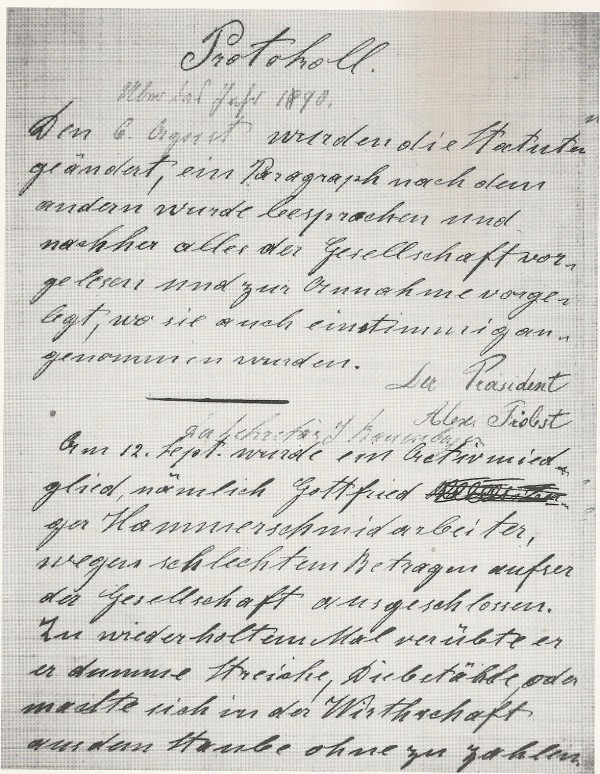 Protokoll.
Über das Jahr 1890.
Den 6. August wurden die Statuten
geändert, ein Paragraph nach dem
andern wurde besprochen und
nachher alles der Gesellschaft vor-
gelesen und zur Annahme vorge-
legt, wo sie auch einstimmig an-
genommen wurden.
Der Präsident
Alex. Probst
Der Sekretär J.
Am 12. Sept. wurde ein Activmied-
glied, nämlich Gottfried
ger Hammerschmidarbeiter,
wegen schlechtem Betragen aufser
der Gesellschaft ausgeschlossen.
Zu wiederholtem Mal verübte er
er dumme Streiche, Diebstähle, oder
machte sich in der Wirthschaft
aus dem Staube ohne zu zahlen.